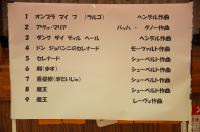 1 オンブラ マイ フ (ラルゴ) ヘンデル作曲
2 アヴェ・マリア バッハ・グノー作曲
3 ダンク ザイ ディル ヘール ヘンデル作曲
4 ドン ジョバンニのセレナード モーツァルト作曲
5 セレナード シューベルト作曲
6 シューベルト作曲
7 菩提樹 (ぼだいじゅ) シューベルト作曲
8 魔王 シューベルト作曲
9 魔王 レーヴェ作曲